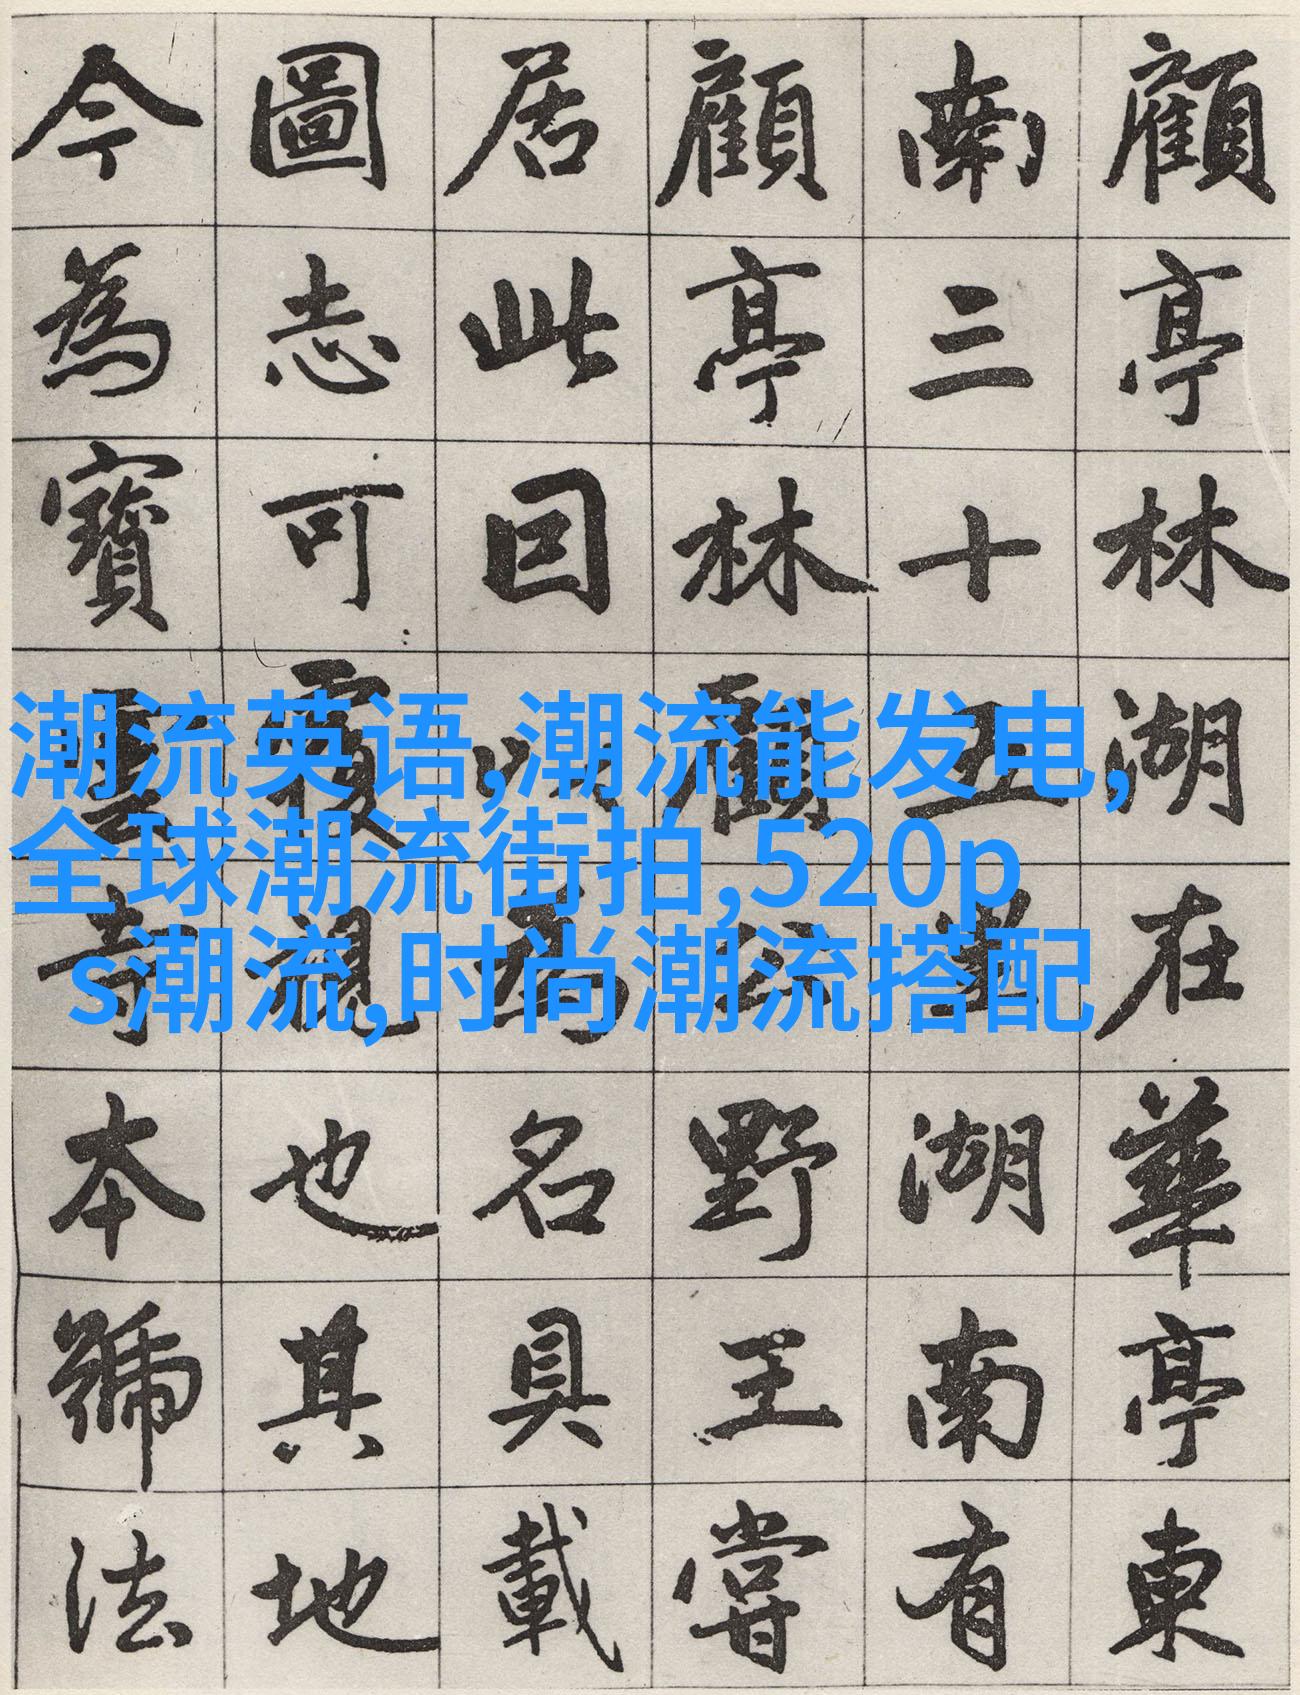 顧亭林湖在華亭東
南三十五里湖南有
顧亭林顧野王嘗
居此囙以為名具載
圖志可覆視也其地
今為寶雲寺本號法
潮流英语,潮流能发电,
全球潮流街拍,520p
s潮流,时尚潮流搭配